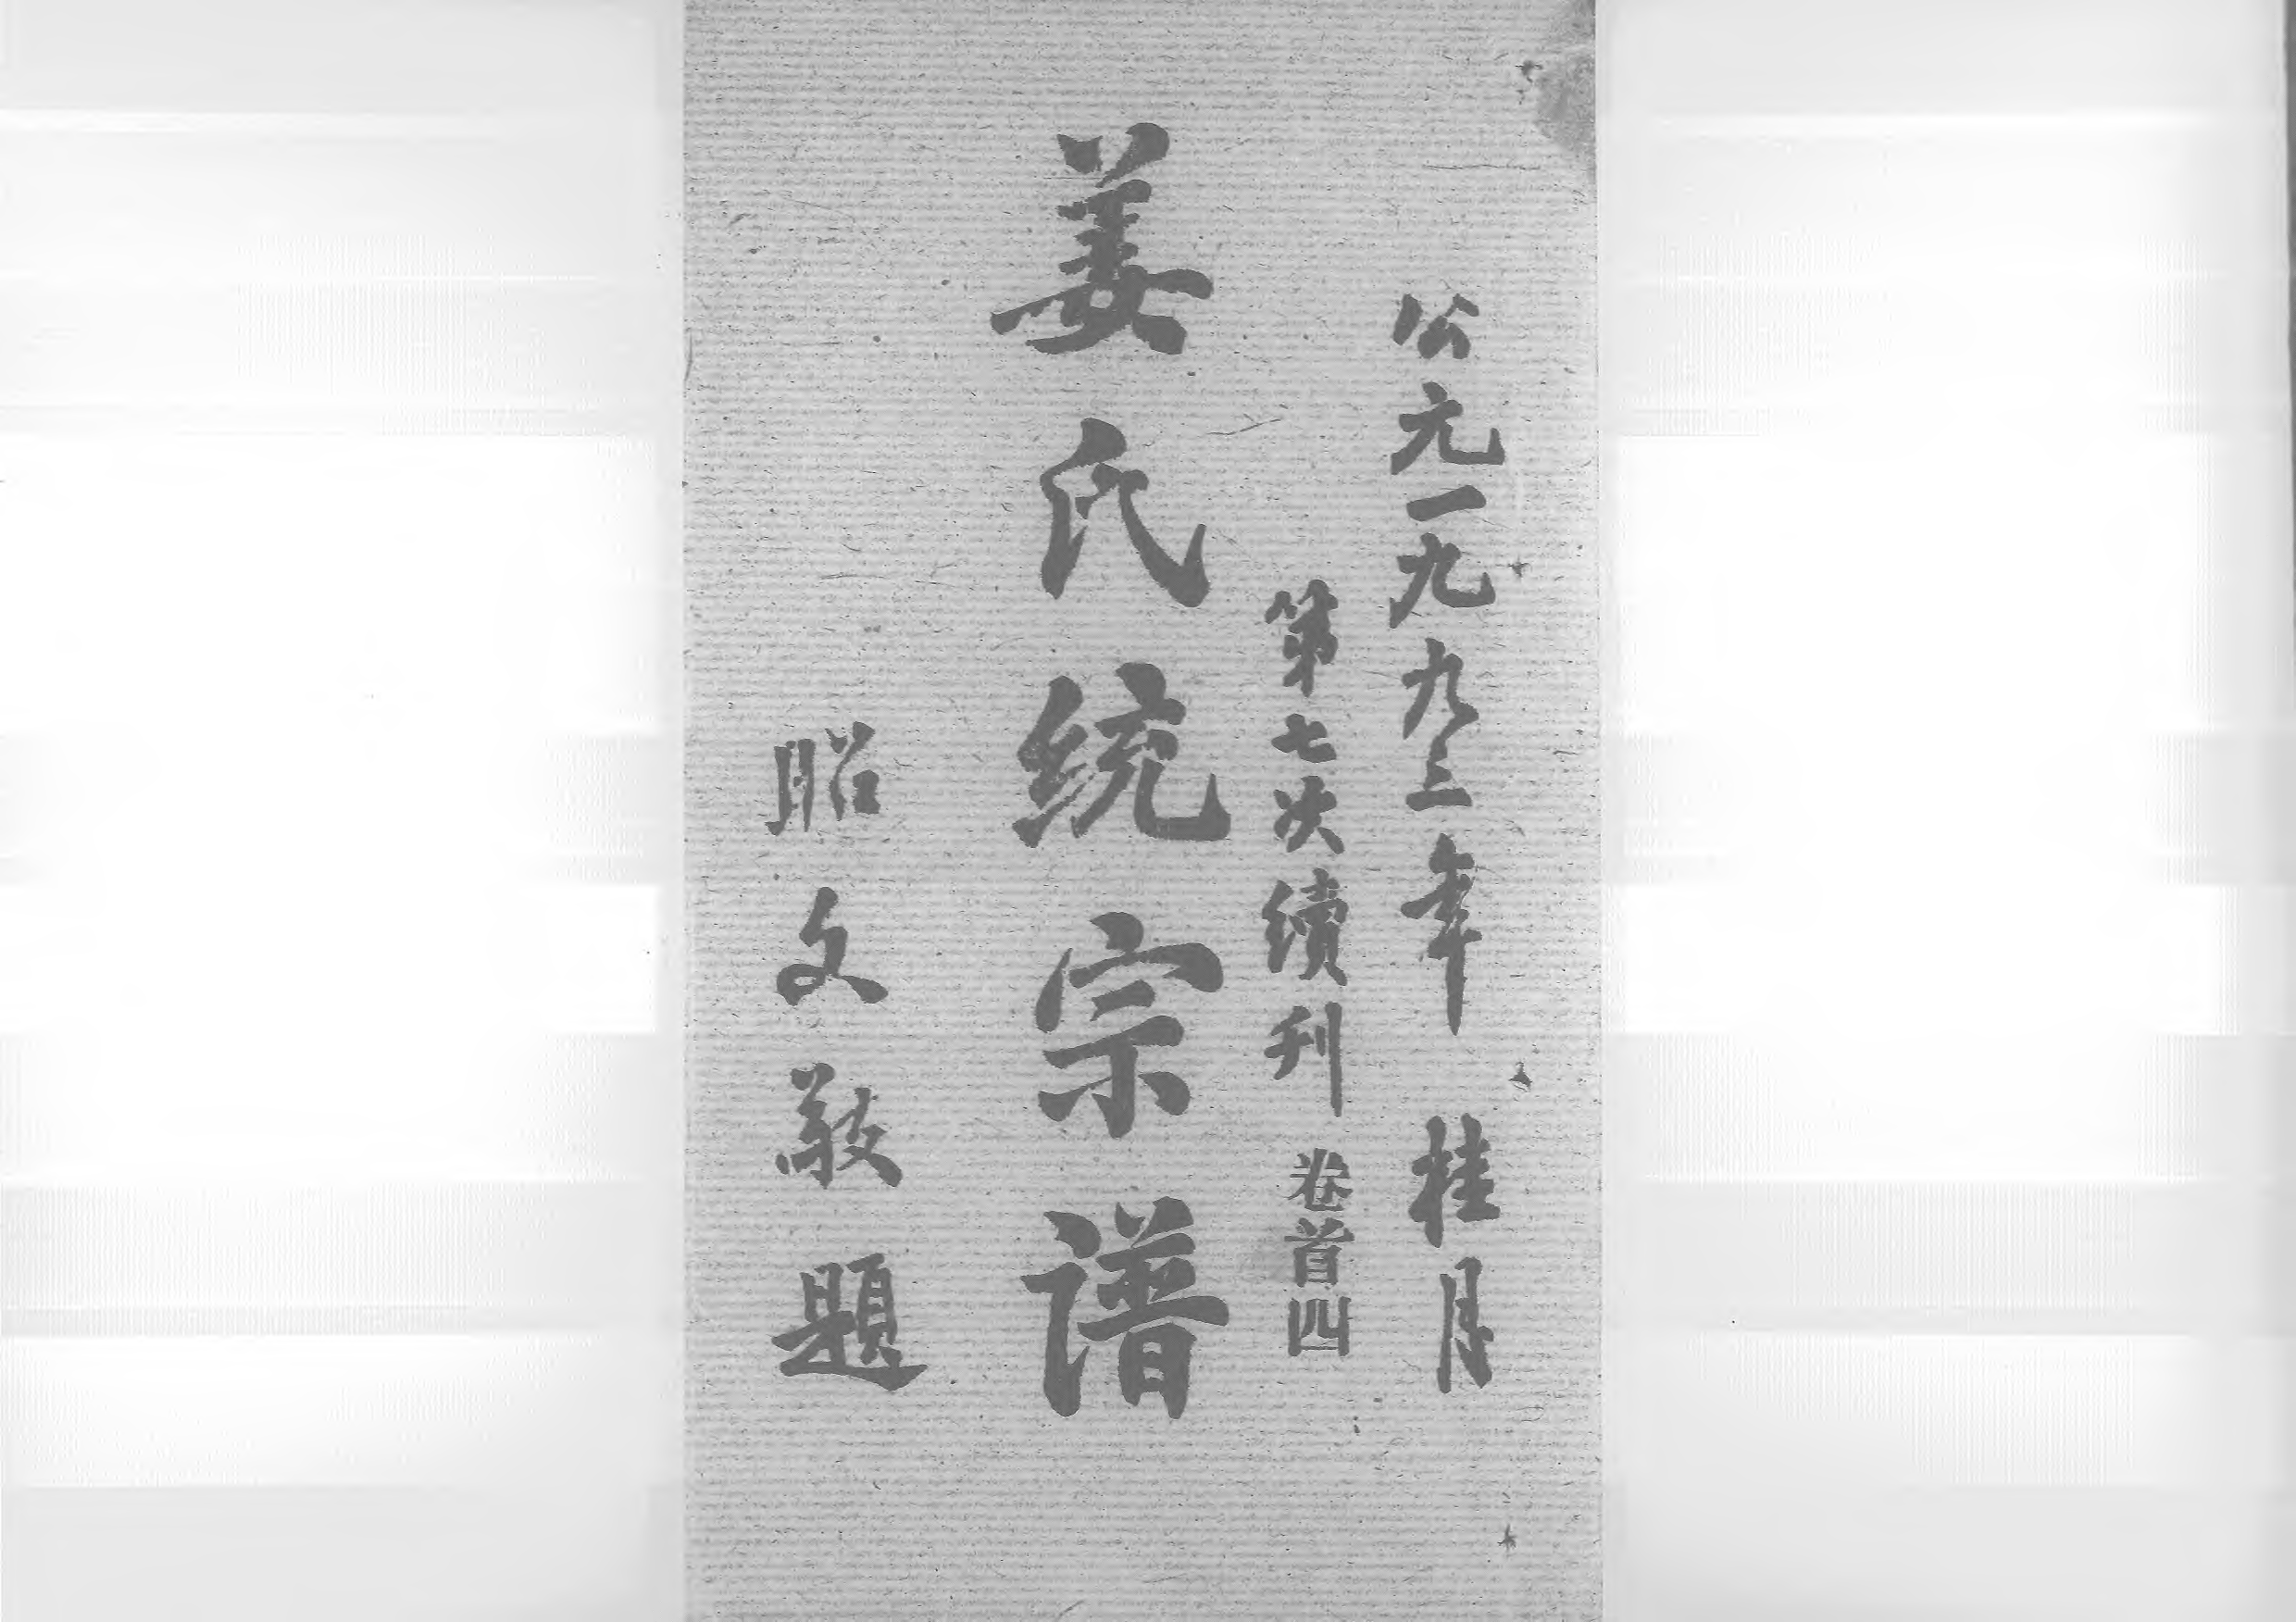 公元一九九三年 桂月
第七次續刊 卷首四
姜氏統宗谱
昭文敬題